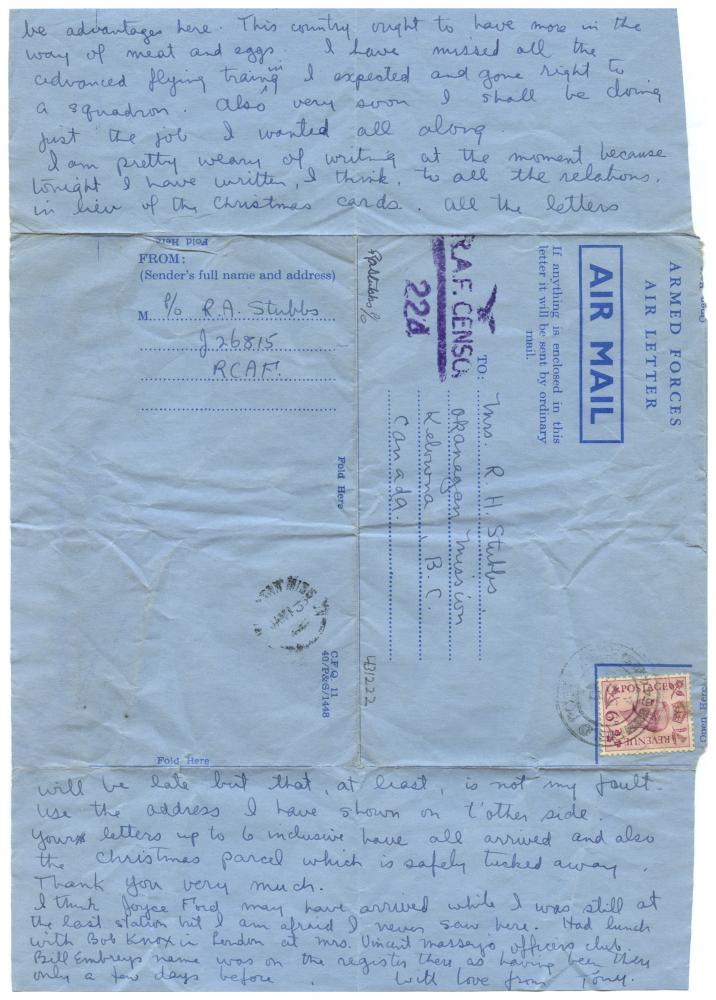 be advantages here. This country ought to have more in the
way of meat and eggs. I have missed all the
advanced flying training I expected and gone right to
a squadron. Also very soon I shall be doing
just the job I wanted all along.
I am pretty weary of writing at the moment because
tonight I have written, I think, to all the relations,
in lieu of the Christmas cards. All the letters
Fold Here
FROM:
(Sender's full name and address)
M. P/O R.A. Stubbs
J26815
RCAF.
Fold Here
C.F.Q. 11
40/P&S/1448
Fold Here
ARMED FORCES
AIR LETTER
AIR MAIL
If anything is enclosed in this
letter it will be sent by ordinary
mail.
R.A.F. CENSO
22A
RAStubbs P/O
TO:
Mrs. R. H. Stubbs,
Okanagan Mission
Kelowna, B.C.
Canada.
431222
POSTAGE
REVENUE
6
Open Here
will be late but that, at least, is not my fault.
Use the address I have shown on t'other side.
Your letters up to 6 inclusive have all arrived and also
the Christmas parcel which is safely tucked away.
Thank you very much.
I think Joyce Flord may have arrived while I was still at
the last station but I am afraid I never saw here. Had lunch
with Bob Knox in London at Mrs. Vincent Masseys officers club.
Bill Embreys name was on the register there as having been there
only a few days before. With love from Tony.